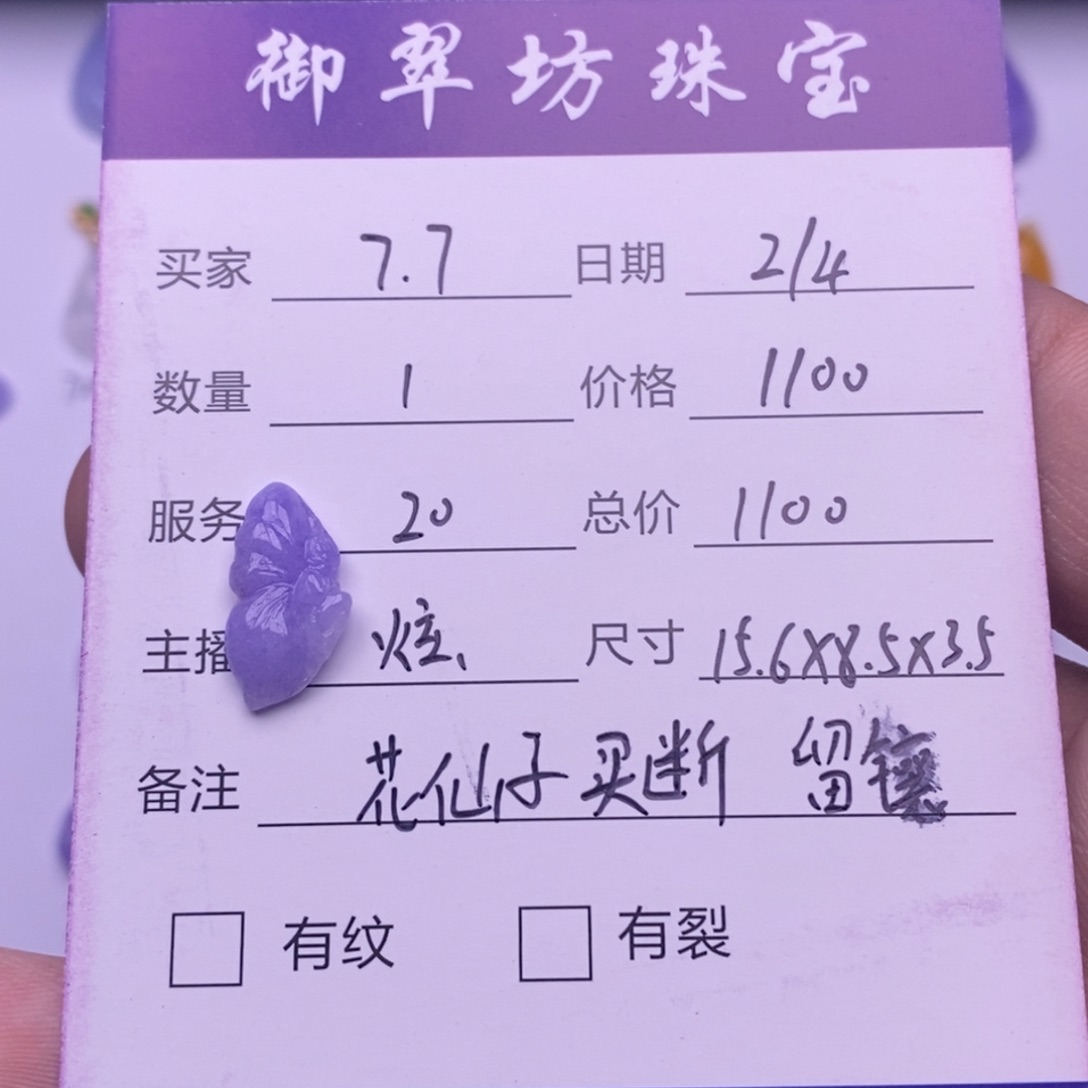 御翠坊珠宝
买家 7.7 日期 2/4
数量 1 价格 1100
服务 20 总价 1100
主播 炫、 尺寸 15.6X8.5X3.5
备注 花仙子买断 留镶
有纹 有裂